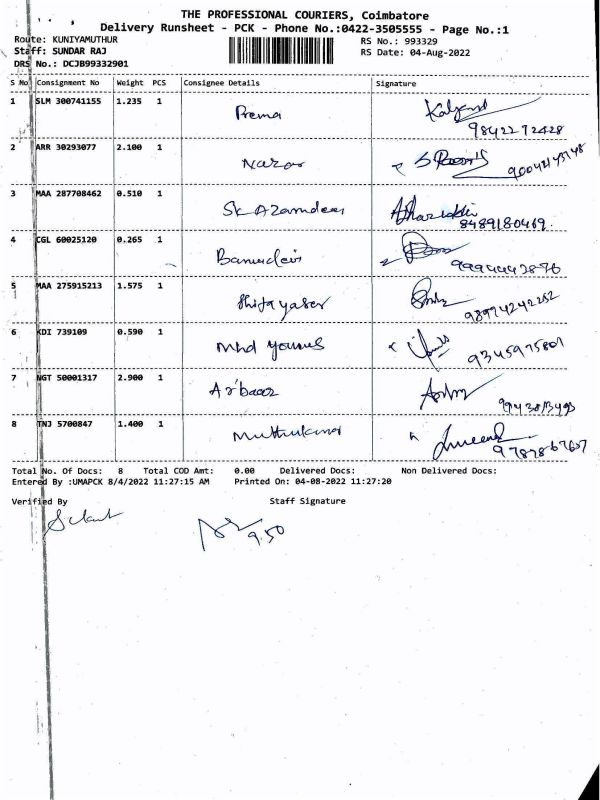 THE PROFESSIONAL COURIERS, Coimbatore
Delivery Runsheet - PCK - Phone No.:0422-3505555 - Page No.:1
Route: KUNIYAMUTHUR RS No.: 993329
Staff: SUNDAR RAJ RS Date: 04-Aug-2022
DRS No.: DCJB99332901
S No Consignment No Weight PCS Consignee Details Signature
1 SLM 300741155 1.235 1 Prema
9842272428
2 ARR 30293077 2.100 1
3 MAA 287708462 0.510 1 Sk Azamdeen
8489180469
4 CGL 60025120 0.265 1 Banudevi
9994442876
5 MAA 275915213 1.575 1
6 KDI 739109 0.590 1 Mhd Younus
9345975801
7 NGT 50001317 2.900 1 Arbaaz
8 TNJ 5700847 1.400 1 Muthukumar
9787867607
Total No. Of Docs: 8 Total COD Amt: 0.00 Delivered Docs: Non Delivered Docs:
Entered By :UMAPCK 8/4/2022 11:27:15 AM Printed On: 04-08-2022 11:27:20
Verified By Staff Signature
9.50